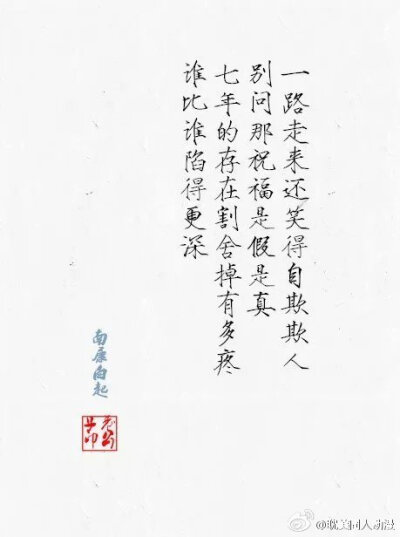 一路走来还笑得自欺欺人
别问那祝福是假是真
七年的存在割舍掉有多疼
谁比谁陷得更深
南康白起
@耽美同人动漫